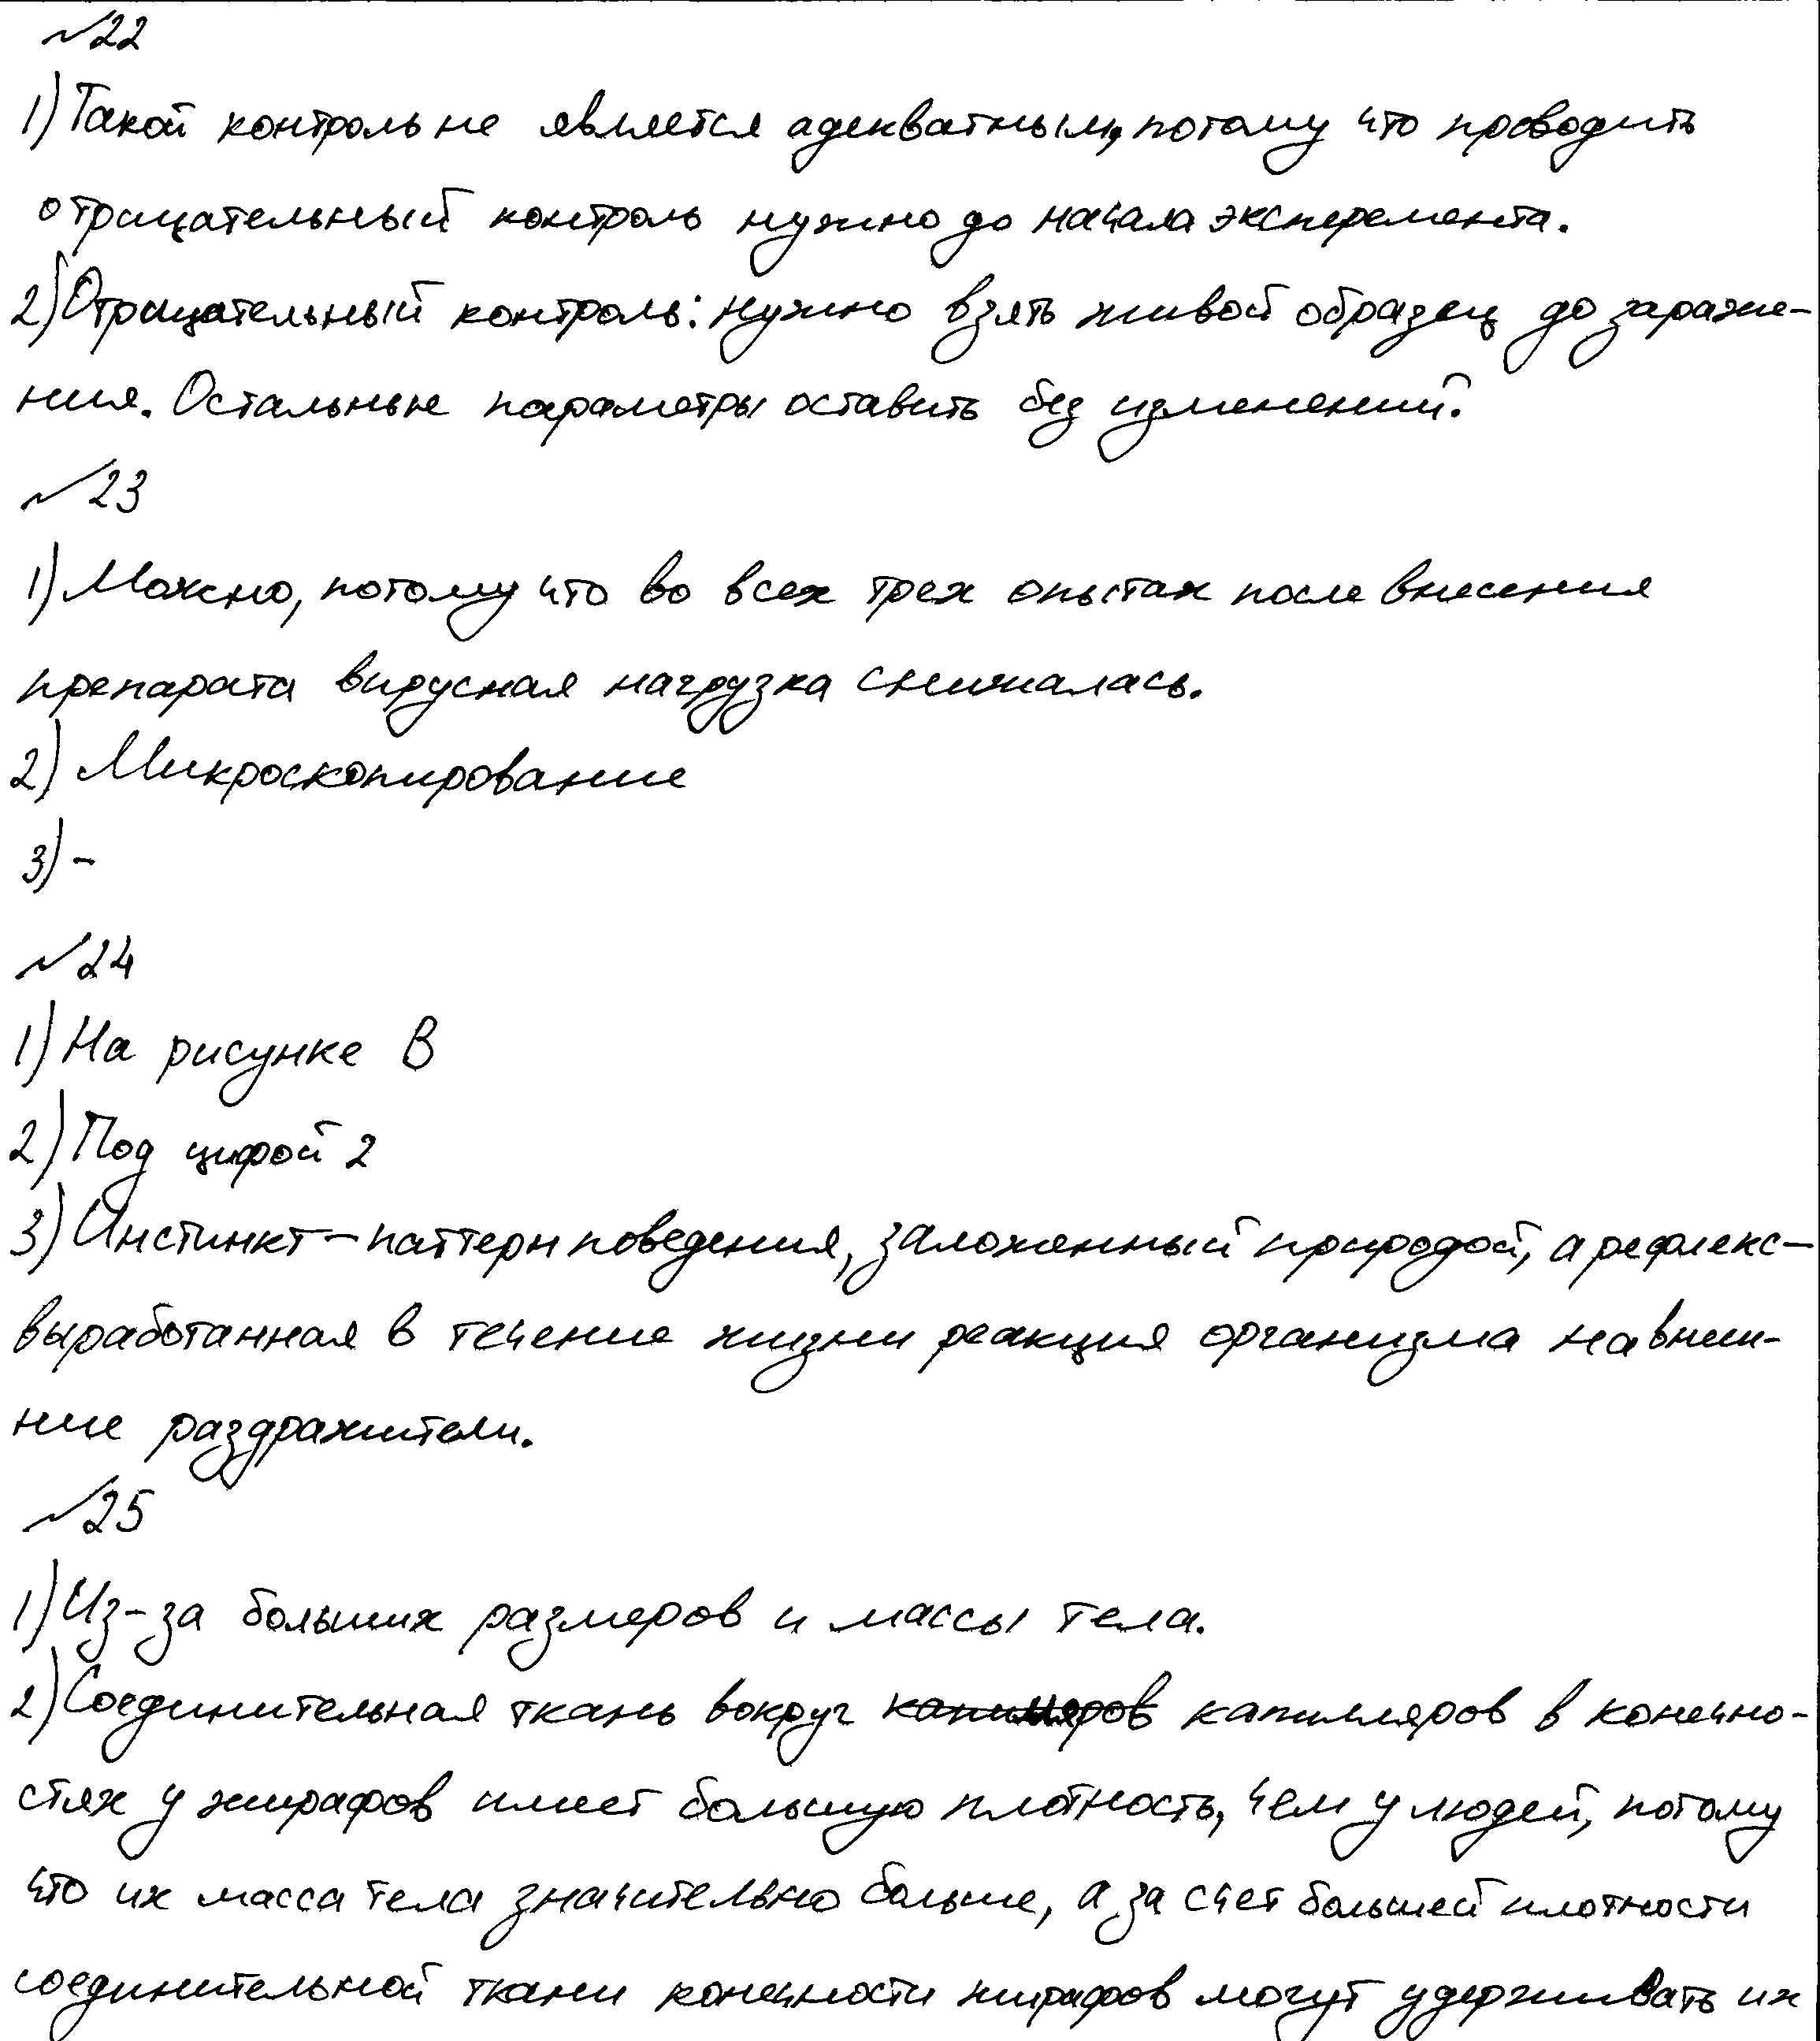 №22
1) Такой контроль не является адекватным, потому что проводить
отрицательный контроль нужно до начала эксперемента.
2) Отрицательный контроль: нужно взять живой образец до зараже-
ния. Остальные параметры оставить без изменений.
№23
1) Можно, потому что во всех трех опытах после внесения
препарата вирусная нагрузка снижалась.
2) Микроскопирование
3) -
№24
1) На рисунке В
2) Под цифрой 2
3) Инстинкт – паттерн поведения, заложенный природой, а рефлекс –
выработанная в течение жизни реакция организма на внеш-
ние раздражители.
№25
1) Из-за больших размеров и массы тела.
2) Соединительная ткань вокруг капилляров капилляров в конечно-
стях у жирафов имеет большую плотность, чем у людей, потому
что их масса тела значительно больше, а за счет большей плотности
соединительной ткани конечности жирафов могут удерживать их